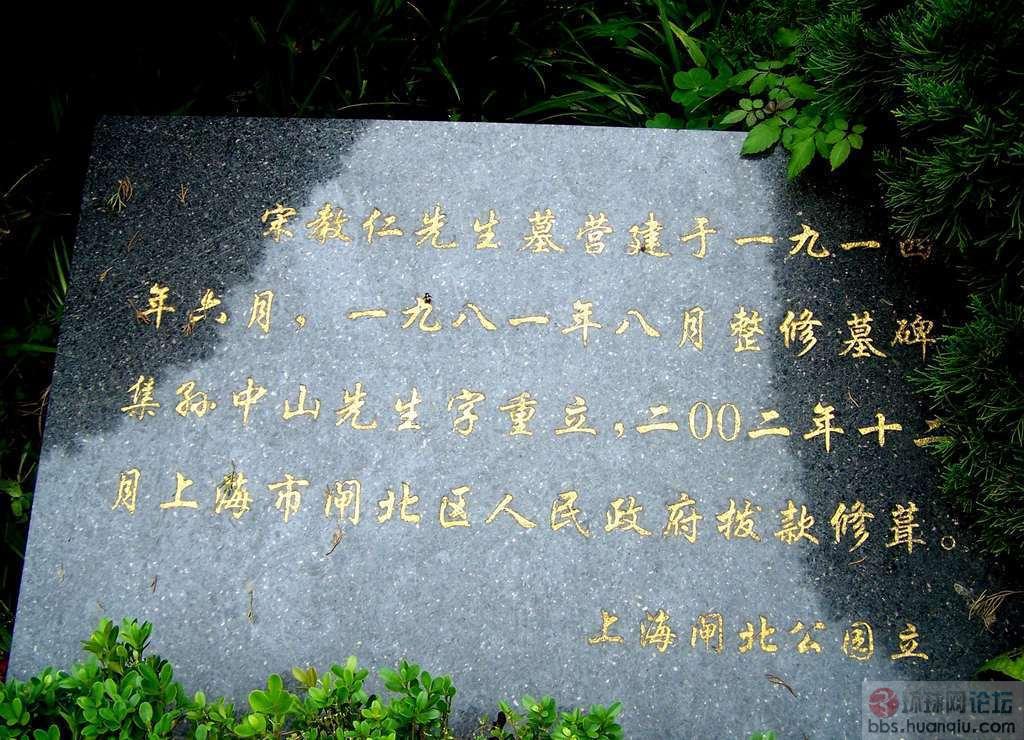 宋教仁先生墓营建于一九一四
年六月，一九八一年八月整修墓碑
集孙中山先生字重立，二00二年十二
月上海市闸北区人民政府拨款修葺。
上海闸北公园立
环球网论坛
bbs.huanqiu.com